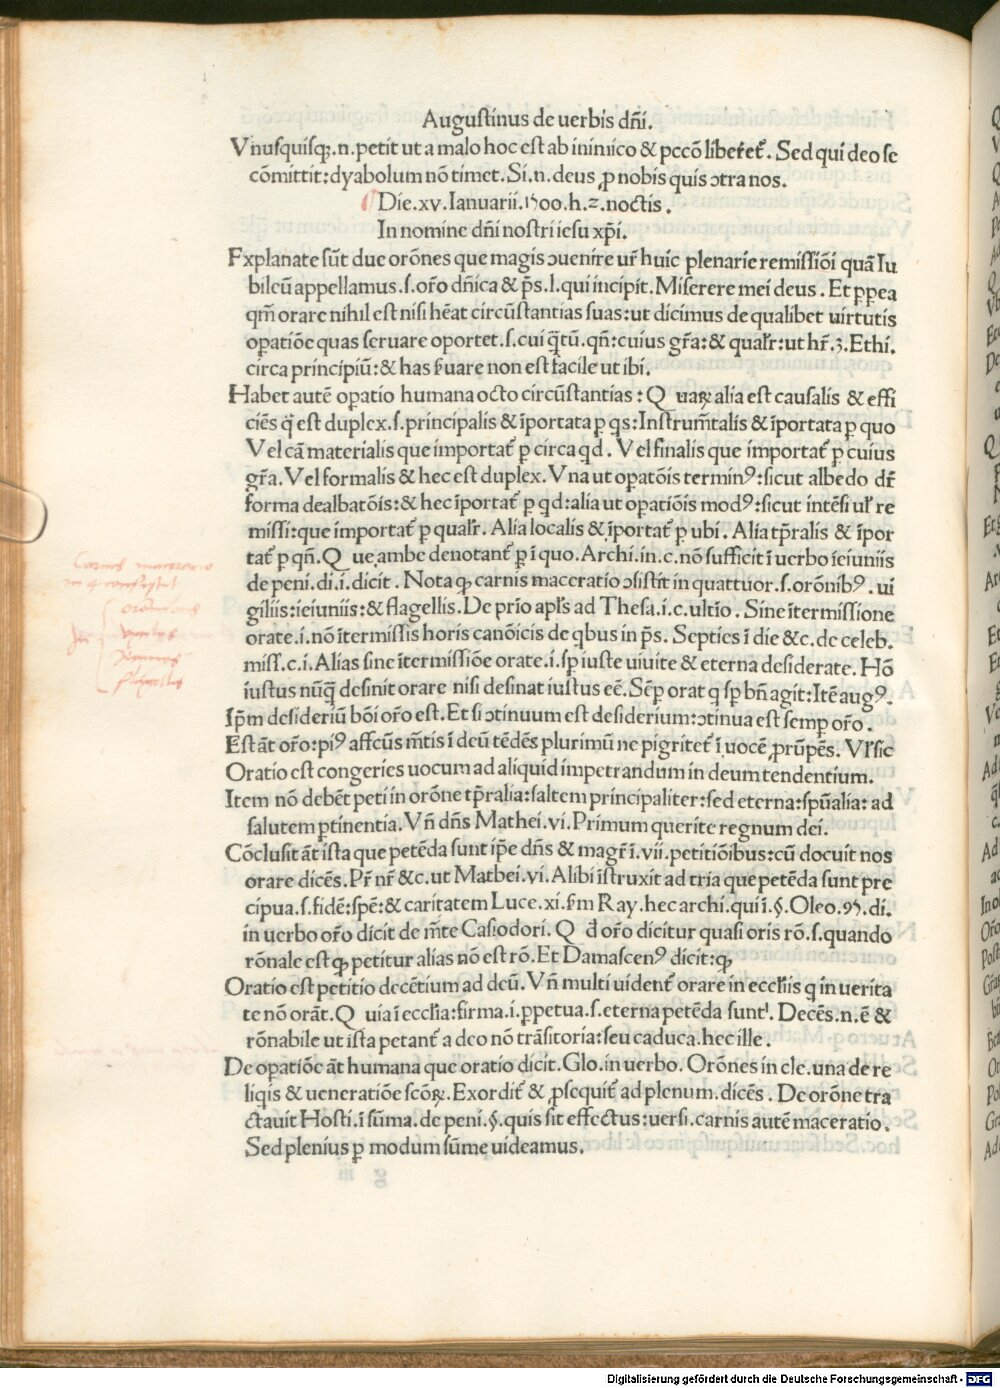 Augustinus de uerbis dñi.
Vnusquisqꝫ.n.petit ut a malo hoc est ab inimico & pccō liberet᷑. Sed qui deo se
cōmittit:dyabolum nō timet. Si.n.deus ꝓ nobis quis ↄtra nos.
Die.xv.Ianuarii.1500.h.2.noctis.
In nomine dñi nostri iesu xp̄i.
Explanate sūt due orōnes que magis ↄuenire ur̃ huic plenarie remissiōi quā Iu
bileū appellamus.s.orō dñica & p̄s.l.qui incipit. Miserere mei deus. Et ꝓpea
qm̄ orare nihil est nisi hēat circūstantias suas:ut dicimus de qualibet uirtutis
opatiōe quas seruare oportet.s.cui q̄tū.qn̄:cuius gr̃a:& qualr̃:ut hr̃.3.Ethi.
circa principiū:& has s̃uare non est facile ut ibi.
Habet autē oꝑatio humana octo circūstantias: Q uaꝝ alia est causalis & effi
ciēs q̄ est duplex.s.principalis & īportata ꝑ qs:Instrum̄talis & īportata ꝑ quo
Vel cā materialis que importat᷑ ꝑ circa qd. Vel finalis que importat᷑ ꝑ cuius
gr̃a. Vel formalis & hec est duplex. Vna ut opatōis terminꝰ:sicut albedo dr̃
forma dealbatōis:& hec īportat᷑ ꝑ qd:alia ut opatiōis modꝰ:sicut intēsi ul̃ re
missi:que importat᷑ ꝑ qualr̃. Alia localis & īportat᷑ ꝑ ubi. Alia tp̄ralis & īpor
tat᷑ ꝑ qn̄.Q ue ambe denotant᷑ ꝑ ī quo.Archi.in.c.nō sufficit ī uerbo ieiuniis
de peni.di.i.dicit. Nota ꝙ carnis maceratio ↄsistit in quattuor.s.orōnibꝰ.ui
giliis:ieiuniis:& flagellis. De prīo apl̃s ad Thesa.i.c.ultīo. Sine ītermissione
orate.i.nō ītermissis horis canōicis de qbus in p̄s. Septies ī die &c.de celeb.
miss.c.i. Alias sine ītermissiōe orate.i.sꝑ iuste uiuite & eterna desiderate. Hō
iustus nūq̄ desinit orare nisi desinat iustus eē. Sēꝑ orat q sꝑ bn̄ agit:Itē augꝰ.
Ip̄m desideriū bōi orō est. Et si ↄtinuum est desiderium:ↄtinua est semꝑ orō.
Est āt orō:piꝰ affcūs m̄tis ī deū tēdēs plurimū ne pigritet᷑ ī uocē ꝓrūpēs. Vl̃ sic
Oratio est congeries uocum ad aliquid impetrandum in deum tendentium.
Item nō debēt peti in orōne tp̄ralia:saltem principaliter:sed eterna:spūalia:ad
salutem ꝑtinentia. Vñ dñs Mathei.vi. Primum querite regnum dei.
Cōclusit āt ista que petēda sunt ip̄e dñs & magr̃ ī.vii.petitiōibus:cū docuit nos
orare dicēs. Pr̃ nr̃ &c.ut Mathei.vi. Alibi īstruxit ad tria que petēda sunt pre
cipua.s.fidē:spē:& caritatem Luce.xi.s̃m Ray.hec archi.qui ī.§.Oleo.95.di.
in uerbo orō dicit de m̄te Casiodori. Q đ orō dicitur quasi oris rō.s.quando
rōnale est ꝙ petitur alias nō est rō. Et Damascenꝰ dicit:ꝙ
Oratio est petitio decētium ad deū. Vñ multi uident᷑ orare in eccl̃iis q in uerita
te nō orāt. Q uia ī eccl̃ia:firma.i.ꝑpetua.s.eterna petēda sunt. Decēs.n.ē &
rōnabile ut ista petant᷑ a deo nō trāsitoria:seu caduca.hec ille.
De opatiōe āt humana que oratio dicit. Glo.in uerbo. Orōnes in cle.una de re
liqis & ueneratiōe scōꝝ. Exordit᷑ & ꝓsequit᷑ ad plenum.dicēs. De orōne tra
ctauit Hosti.ī sūma.de peni.§.quis sit effectus:uersi.carnis autē maceratio.
Sed plenius ꝑ modum sūme uideamus.